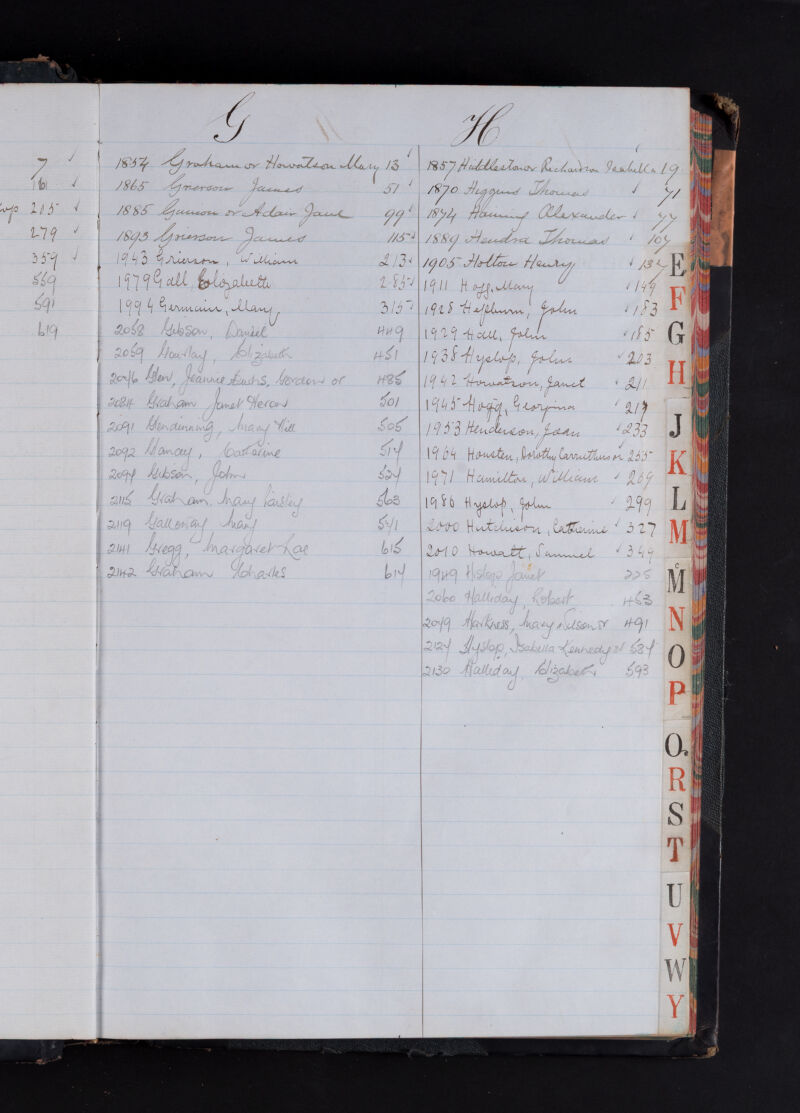 7
161
205
279
359
559
591
619
G
1854 Graham or Howatson Mary 13
1865 Grierson James 51
1885 Gunson or Adair Jane 99
1893 Grierson James 115
1943 Grierson, William 213
1979 Gall, Elizabeth 285
1994 Germain, Mary 315
2058 Gibson, Daniel 449
2059 Gourlay, Elizabeth 451
2076 Glen, Jeannie Gordon or 485
2084 Graham, Janet Heron 501
2091 Glendinning, Mary Hill 505
2092 Catherine 517
2097 Gibson, John 527
2115 Graham, Mary Paisley 563
2119 Galloway Mary 571
2141 Gregg, Margaret Rae 615
2142 Graham Charles 617
H
1857 Huddlestone or Richardson Isabella 19
1870 Higgins Thomas 71
1874 Hanning Alexander 77
1889 Hendra Thomas 107
1905 Holton Henry 137
1911 Hogg, Mary 149
1928 Hepburn, John 183
1929 Hall, John 185
1938 Hyslop, John 203
1942 Howatson, Janet 211
1945 Hogg, Georgina 217
1953 Henderson, Joan 233
1964 Houston, Dorothy Carruthers or 255
1971 Hamilton, William 269
1986 Hyslop, John 299
2000 Hutchison, Catherine 327
2010 Howatt, Samuel 349
1949 Hislop Janet 225
2060 Halliday, Robert 453
2079 Harkness, Mary Nilson or 491
2127 Hyslop, Isabella Kennedy or 587
2130 Halliday, Elizabeth 593
E
F
G
H
J
K
L
M
Mc
N
O
P
Q
R
S
T
U
V
W
Y